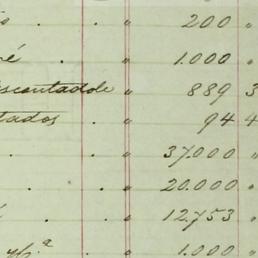 200 "
1.000 "
889 3
tados . " 94 4
. " 37.000 "
. " 20.000 "
. " 12.753 "
" 1.000 "